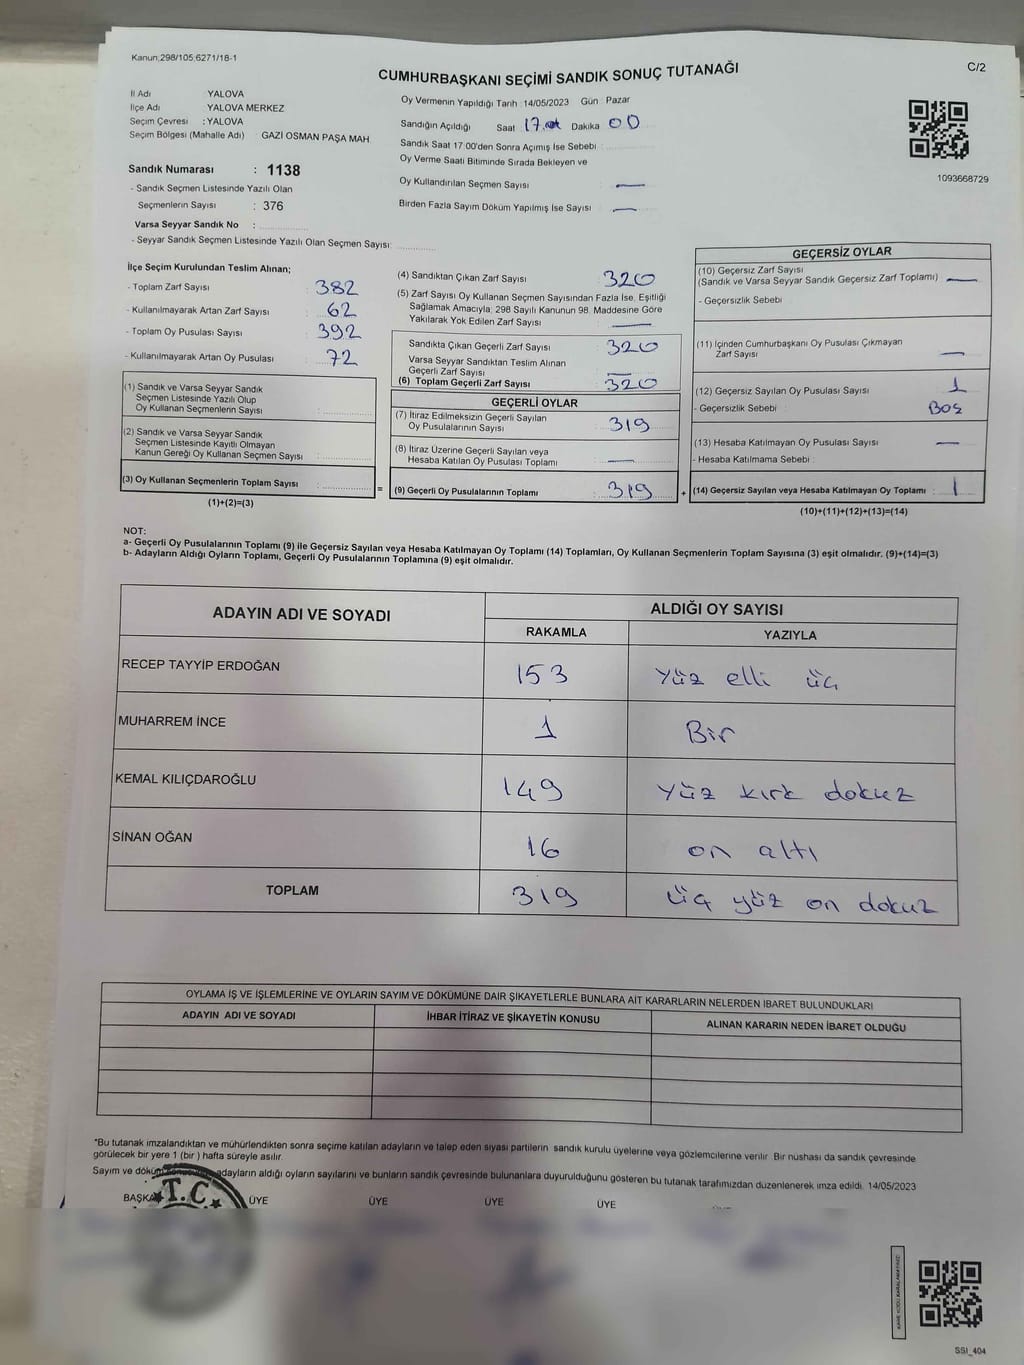 Kanun;298/105;6271/18-1
CUMHURBAŞKANI SEÇİMİ SANDIK SONUÇ TUTANAĞI
C/2
İl Adı YALOVA
İlçe Adı YALOVA MERKEZ
Seçim Çevresi : YALOVA
Seçim Bölgesi (Mahalle Adı) GAZİ OSMAN PAŞA MAH
Sandık Numarası : 1138
- Sandık Seçmen Listesinde Yazılı Olan
Seçmenlerin Sayısı : 376
Varsa Seyyar Sandık No :
- Seyyar Sandık Seçmen Listesinde Yazılı Olan Seçmen Sayısı:
Oy Vermenin Yapıldığı Tarih :14/05/2023 Gün : Pazar
Sandığın Açıldığı Saat 17.00 Dakika 00
Sandık Saat 17:00'den Sonra Açımış İse Sebebi :
Oy Verme Saati Bitiminde Sırada Bekleyen ve
Oy Kullandırılan Seçmen Sayısı : —
Birden Fazla Sayım Döküm Yapılmış İse Sayısı : —
1093668729
İlçe Seçim Kurulundan Teslim Alınan;
- Toplam Zarf Sayısı : 382
- Kullanılmayarak Artan Zarf Sayısı : 62
- Toplam Oy Pusulası Sayısı : 392
- Kullanılmayarak Artan Oy Pusulası : 72
(1) Sandık ve Varsa Seyyar Sandık
Seçmen Listesinde Yazılı Olup
Oy Kullanan Seçmenlerin Sayısı :
(2) Sandık ve Varsa Seyyar Sandık
Seçmen Listesinde Kayıtlı Olmayan
Kanun Gereği Oy Kullanan Seçmen Sayısı :
(3) Oy Kullanan Seçmenlerin Toplam Sayısı :
(1)+(2)=(3)
(4) Sandıktan Çıkan Zarf Sayısı : 320
(5) Zarf Sayısı Oy Kullanan Seçmen Sayısından Fazla İse, Eşitliği
Sağlamak Amacıyla; 298 Sayılı Kanunun 98. Maddesine Göre
Yakılarak Yok Edilen Zarf Sayısı : —
Sandıkta Çıkan Geçerli Zarf Sayısı : 320
Varsa Seyyar Sandıktan Teslim Alınan
Geçerli Zarf Sayısı : —
(6) Toplam Geçerli Zarf Sayısı : 320
GEÇERLİ OYLAR
(7) İtiraz Edilmeksizin Geçerli Sayılan
Oy Pusulalarının Sayısı : 319
(8) İtiraz Üzerine Geçerli Sayılan veya
Hesaba Katılan Oy Pusulası Toplamı : —
= (9) Geçerli Oy Pusulalarının Toplamı : 319
GEÇERSİZ OYLAR
(10) Geçersiz Zarf Sayısı
(Sandık ve Varsa Seyyar Sandık Geçersiz Zarf Toplamı) : —
- Geçersizlik Sebebi :
(11) İçinden Cumhurbaşkanı Oy Pusulası Çıkmayan
Zarf Sayısı : —
(12) Geçersiz Sayılan Oy Pusulası Sayısı : 1
- Geçersizlik Sebebi : Boş
(13) Hesaba Katılmayan Oy Pusulası Sayısı : —
- Hesaba Katılmama Sebebi :
+ (14) Geçersiz Sayılan veya Hesaba Katılmayan Oy Toplamı : 1
(10)+(11)+(12)+(13)=(14)
NOT:
a- Geçerli Oy Pusulalarının Toplamı (9) ile Geçersiz Sayılan veya Hesaba Katılmayan Oy Toplamı (14) Toplamları, Oy Kullanan Seçmenlerin Toplam Sayısına (3) eşit olmalıdır. (9)+(14)=(3)
b- Adayların Aldığı Oyların Toplamı, Geçerli Oy Pusulalarının Toplamına (9) eşit olmalıdır.
ADAYIN ADI VE SOYADI
ALDIĞI OY SAYISI
RAKAMLA YAZIYLA
RECEP TAYYİP ERDOĞAN 153 Yüz elli üç
MUHARREM İNCE 1 Bir
KEMAL KILIÇDAROĞLU 149 Yüz kırk dokuz
SİNAN OĞAN 16 on altı
TOPLAM 319 üç yüz on dokuz
OYLAMA İŞ VE İŞLEMLERİNE VE OYLARIN SAYIM VE DÖKÜMÜNE DAİR ŞİKAYETLERLE BUNLARA AİT KARARLARIN NELERDEN İBARET BULUNDUKLARI
ADAYIN ADI VE SOYADI İHBAR İTİRAZ VE ŞİKAYETİN KONUSU ALINAN KARARIN NEDEN İBARET OLDUĞU
*Bu tutanak imzalandıktan ve mühürlendikten sonra seçime katılan adayların ve talep eden siyasi partilerin sandık kurulu üyelerine veya gözlemcilerine verilir. Bir nüshası da sandık çevresinde
görülecek bir yere 1 (bir ) hafta süreyle asılır.
Sayım ve döküm adayların aldığı oyların sayılarını ve bunların sandık çevresinde bulunanlara duyurulduğunu gösteren bu tutanak tarafımızdan düzenlenerek imza edildi. 14/05/2023
BAŞKAN ÜYE ÜYE ÜYE ÜYE
T.C.
SSI_404